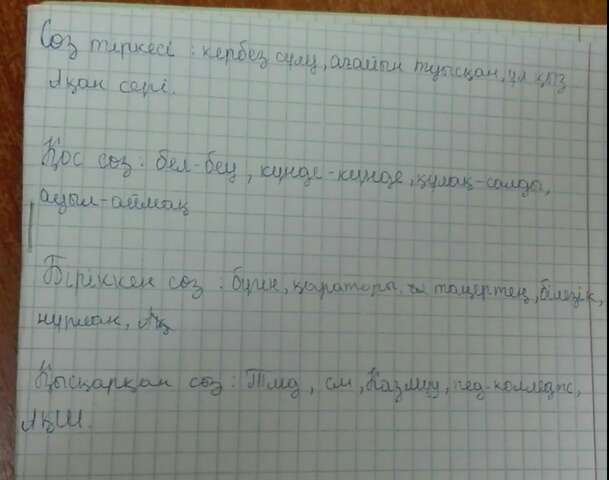 Сөз тіркесі : кербез сұлу, ағайын туысқан, ұл қыз
Ақан сері.
Қос сөз : бел-беу, күнде-күнде, құлақ-салды,
ауыл-аймақ
Біріккен сөз : бүгін, қараторы, таңертең, білезік,
Қысқарған сөз : Тмд, см, Казмұу, пед-колледж,
АҚШ.